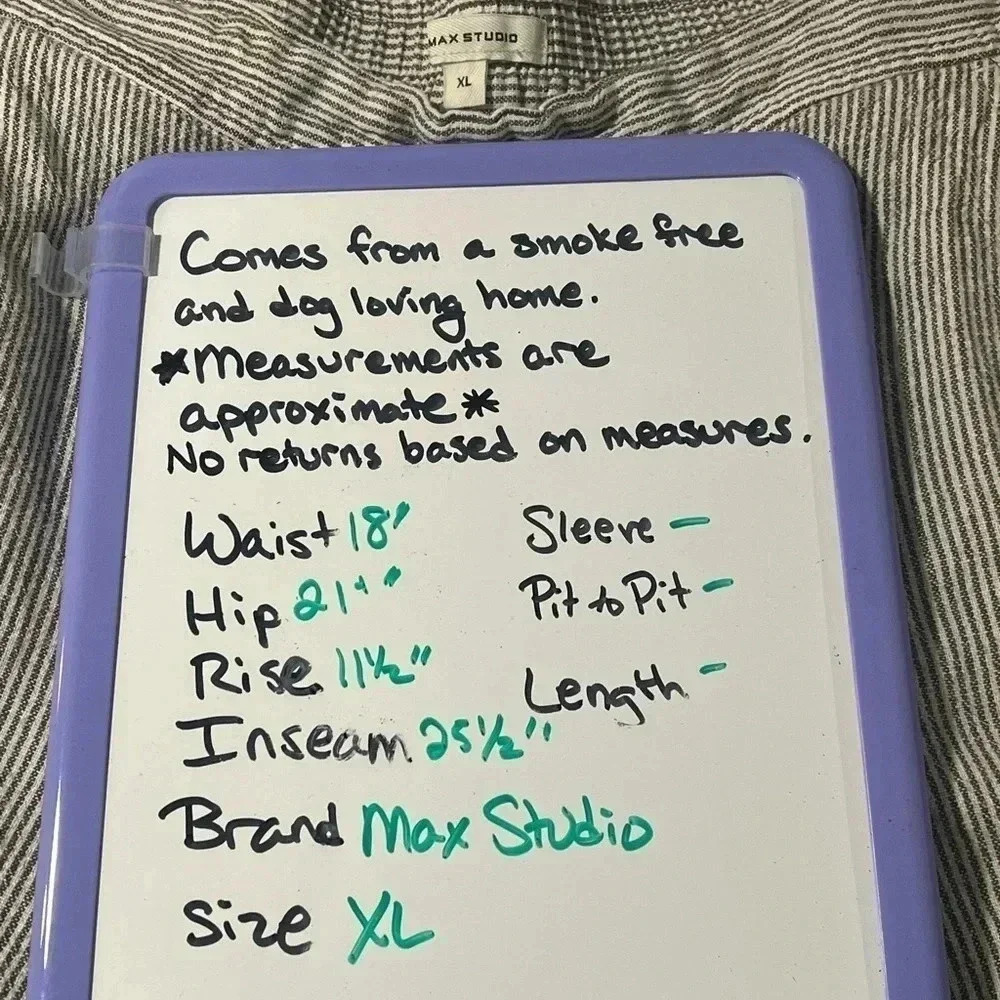 MAX STUDIO
XL
Comes from a smoke free
and dog loving home.
*Measurements are
approximate*
No returns based on measures.
Waist 18"
Sleeve -
Hip 21+"
Pit to Pit -
Rise 11½"
Length -
Inseam 25½"
Brand Max Studio
Size XL